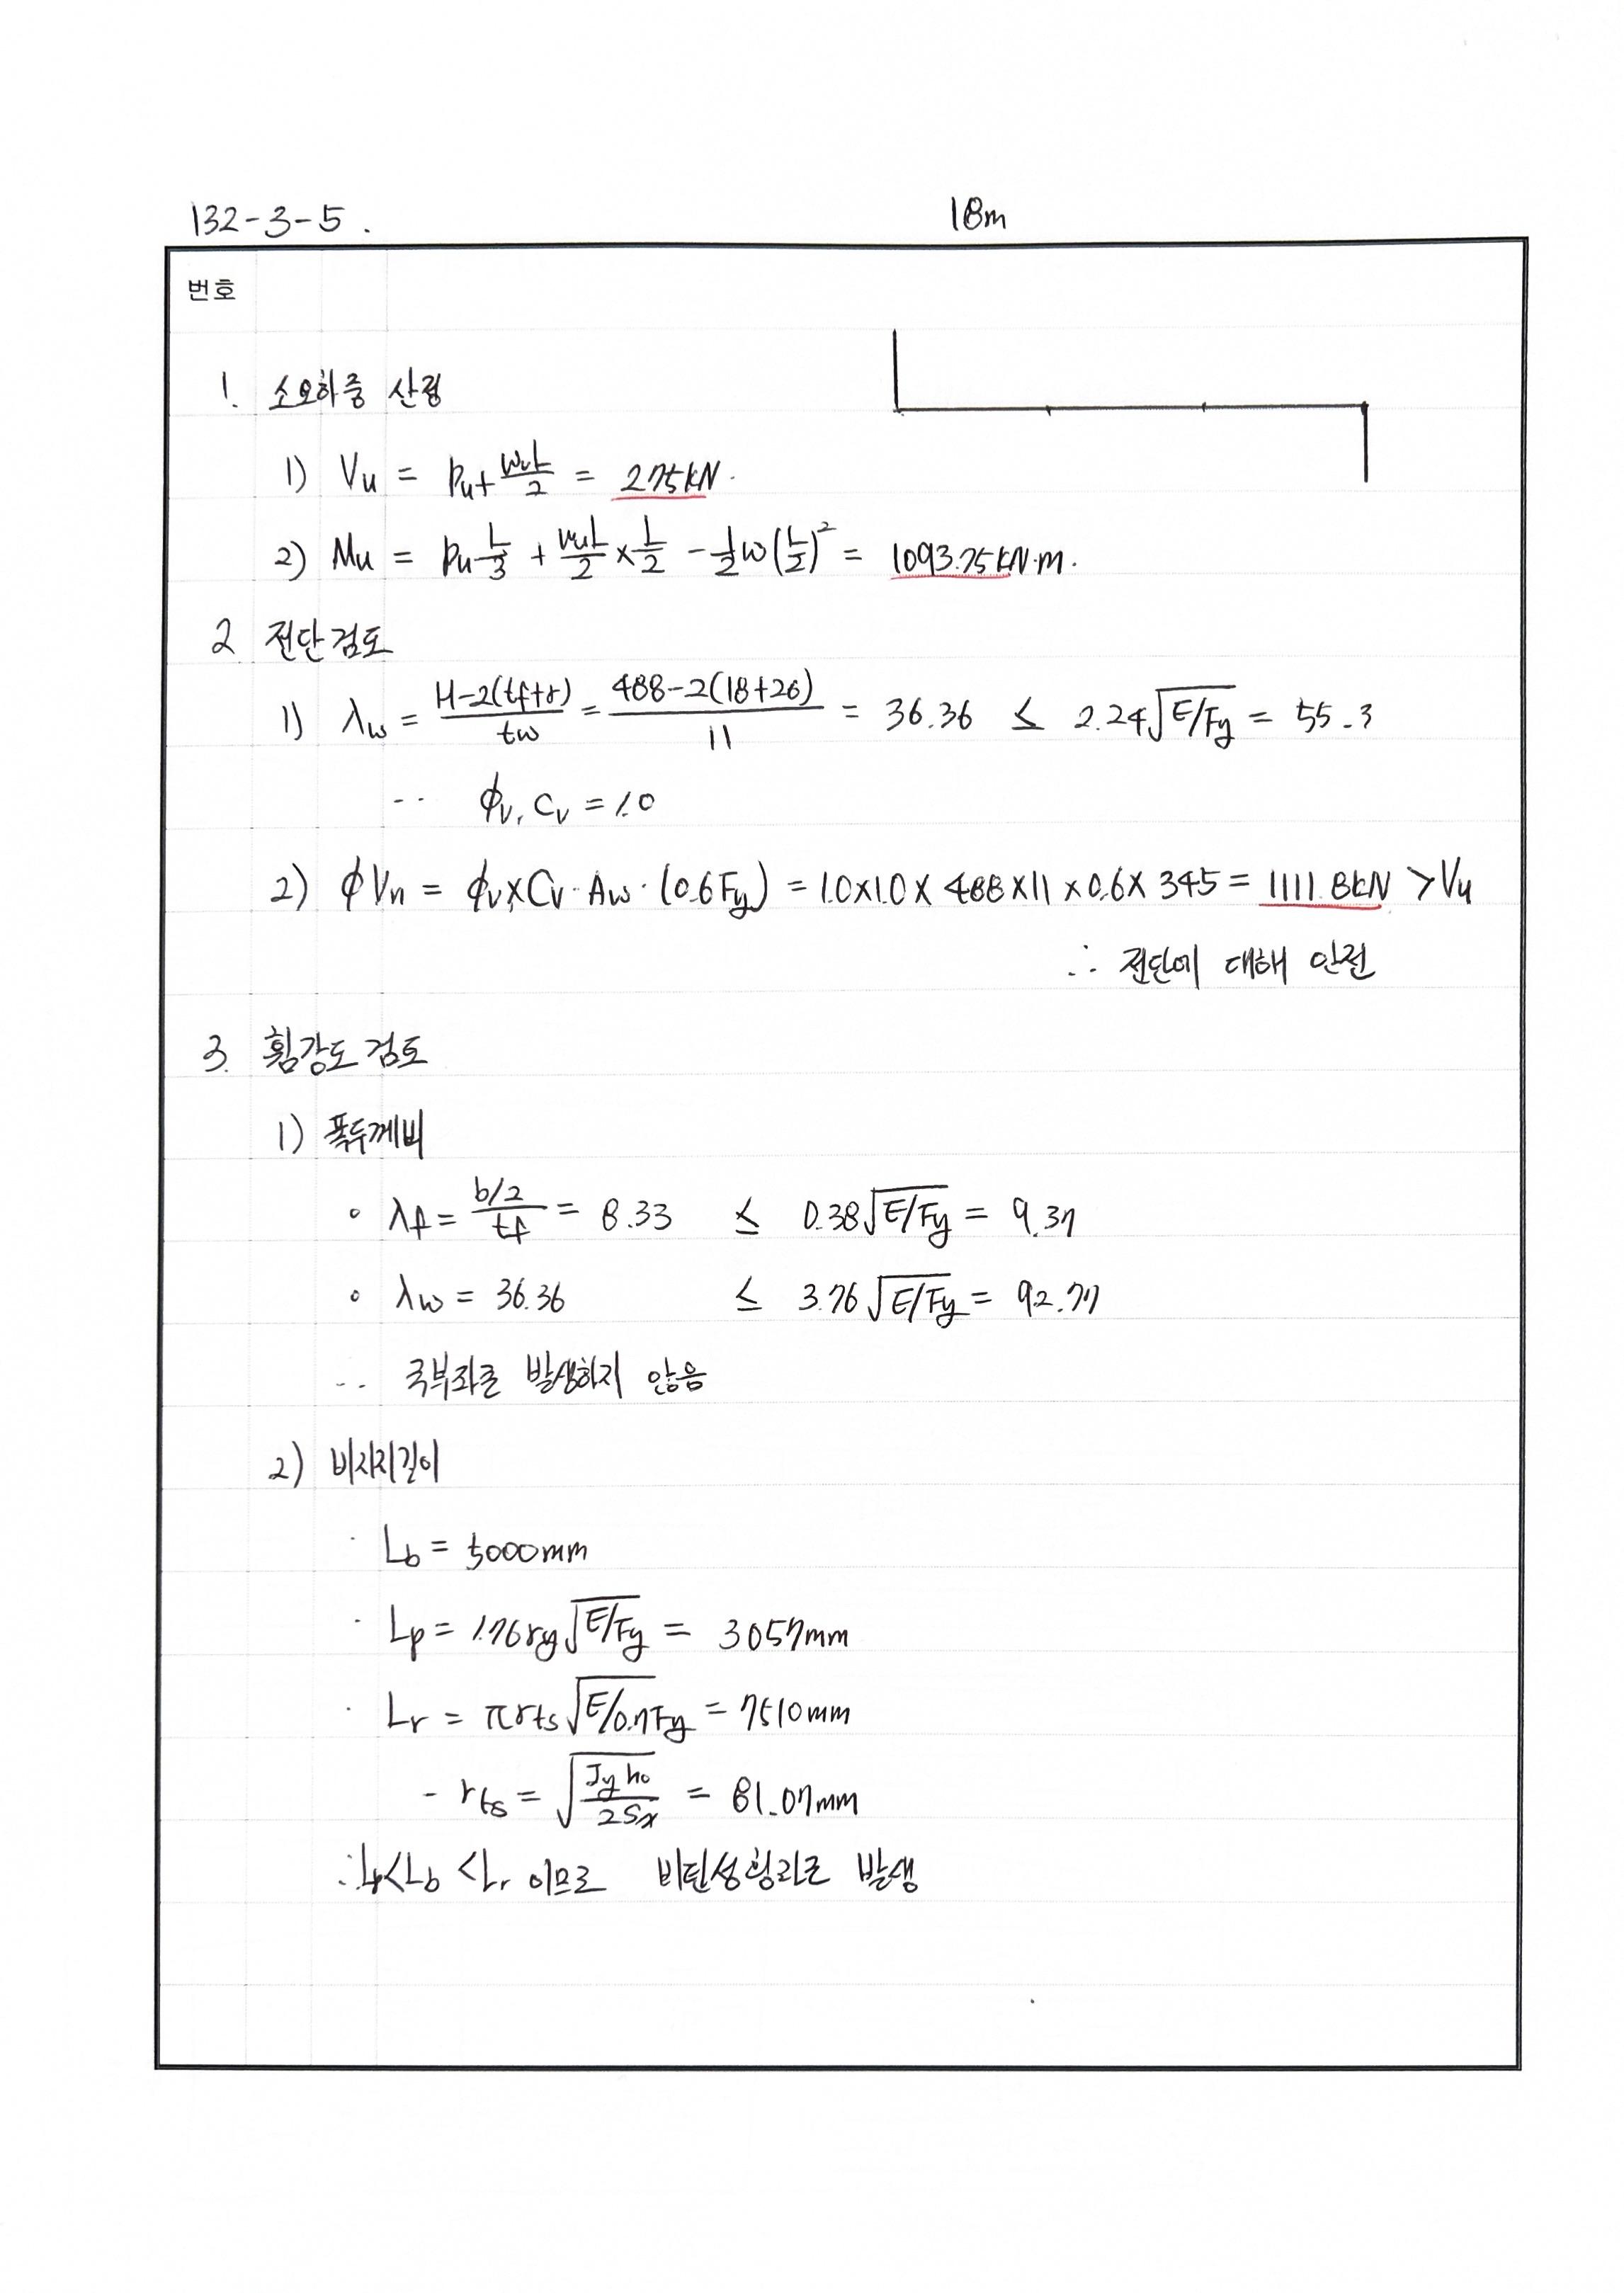 132-3-5.
18m
번호
1. 소요하중 산정
1) Vu = Pu + WuL/2 = 275kN.
2) Mu = Pu L/3 + WuL/2 × L/2 - 1/2 w (L/2)² = 1093.75kN·m.
2 전단검토
1) λw = H-2(tf+r)/tw = 488-2(18+26)/11 = 36.36 ≤ 2.24√E/Fy = 55.3
∴ ϕv, Cv = 1.0
2) ϕVn = ϕv × Cv · Aw · (0.6Fy) = 1.0×1.0× 488×11 ×0.6× 345 = 1111.8kN > Vu
∴ 전단에 대해 안전
3. 휨강도 검토
1) 폭두께비
∘ λf = b/2/tf = 8.33 ≤ 0.38√E/Fy = 9.37
∘ λw = 36.36 ≤ 3.76√E/Fy = 92.77
∴ 국부좌굴 발생하지 않음
2) 비지지길이
· Lb = 5000mm
· Lp = 1.76ry√E/Fy = 3057mm
· Lr = πrts√E/0.7Fy = 7510mm
- rts = √Iy ho/2Sx = 81.07mm
∴ Lp<Lb <Lr 이므로 비탄성횡좌굴 발생